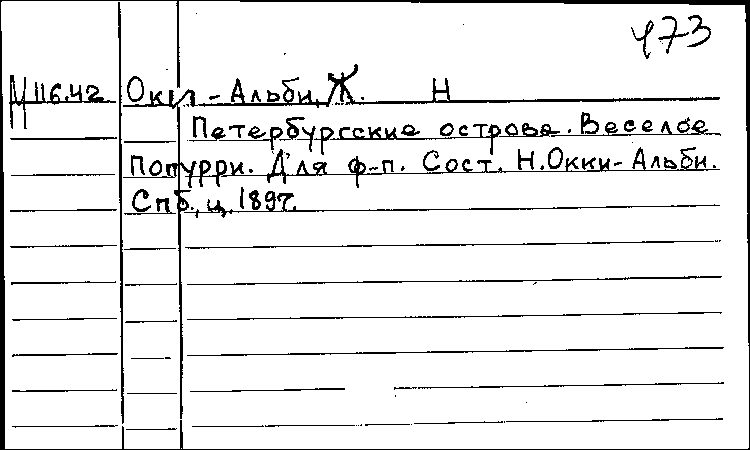 473
М 116.42 Окки-Альби, Ж. Н
Петербургские острова. Веселое
попурри. Для ф-п. Сост. Н. Окки-Альби.
Спб., ц. 1897.